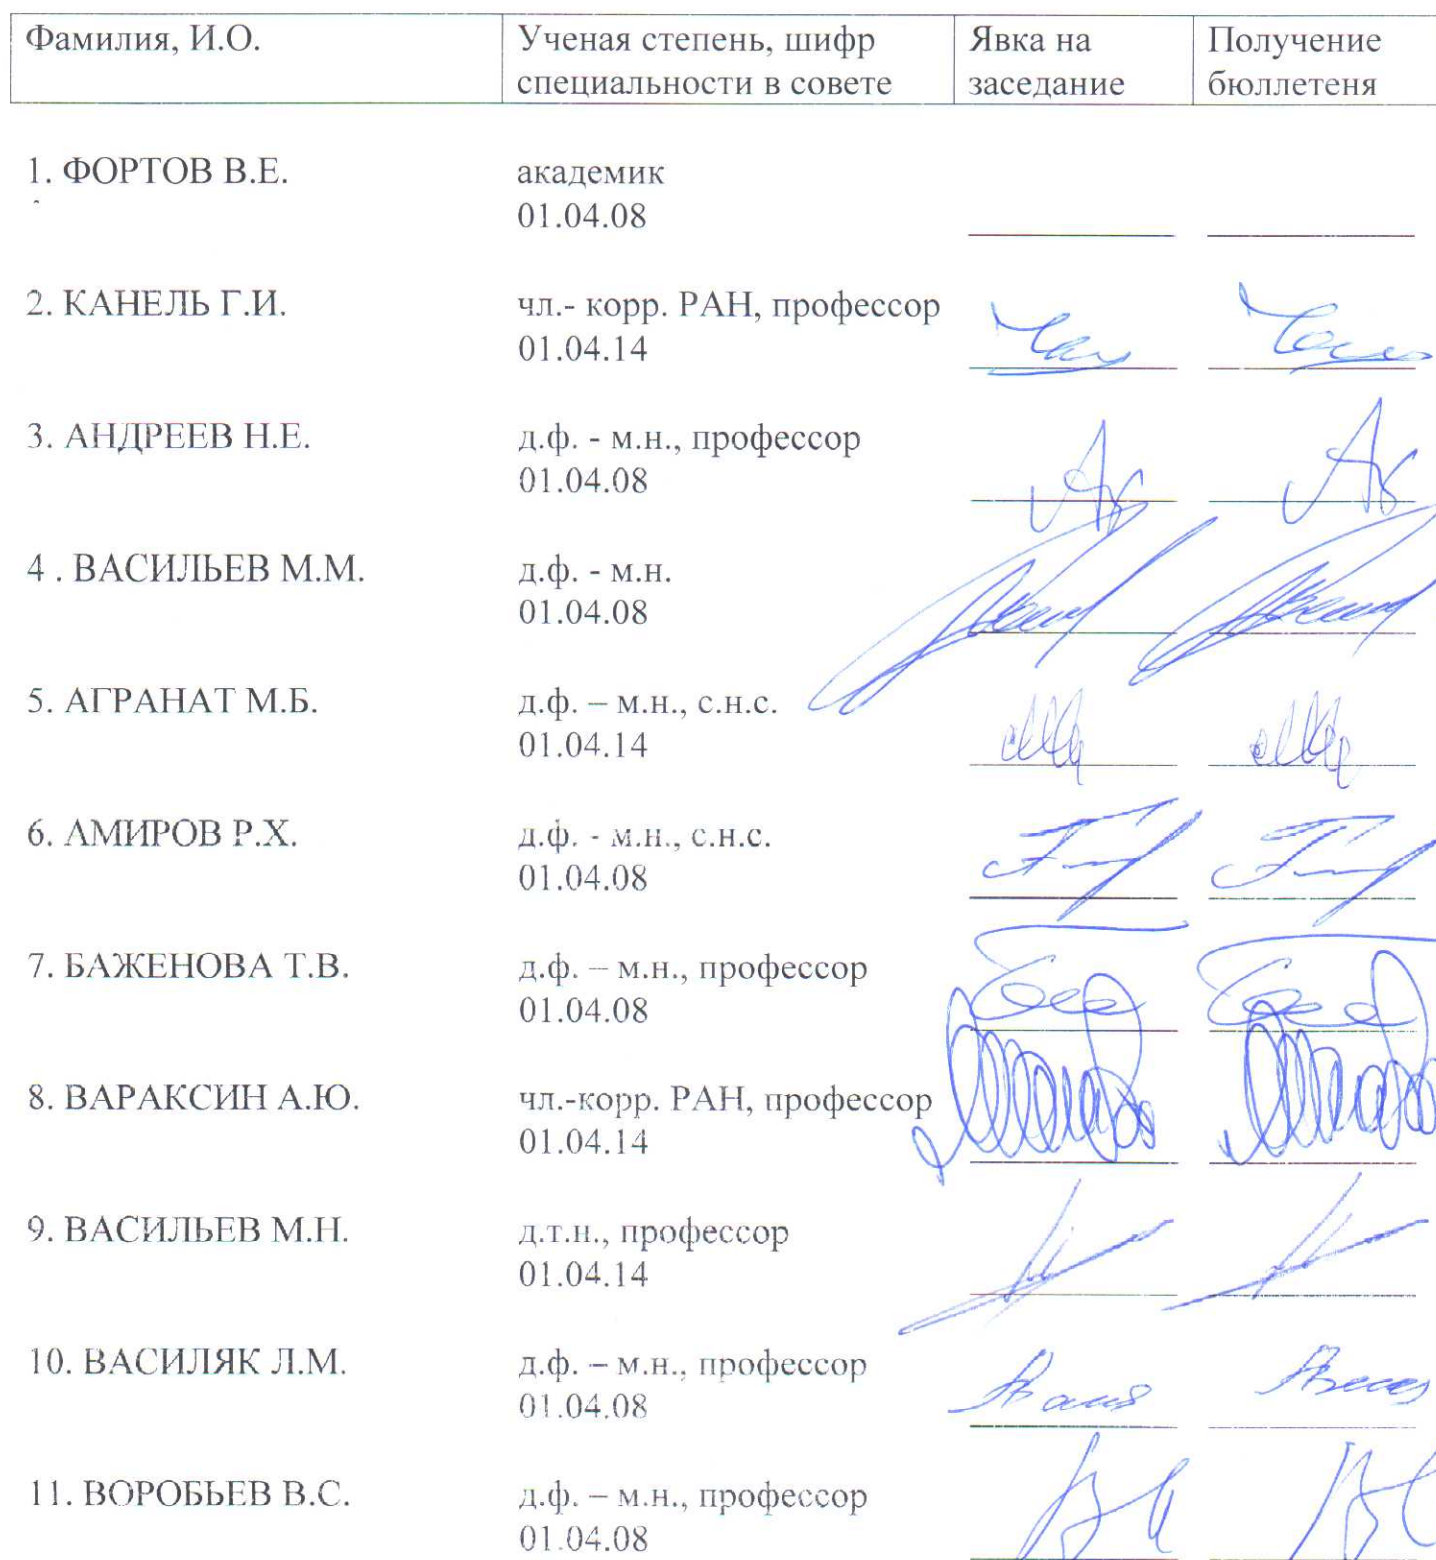 Фамилия, И.О. Ученая степень, шифр Явка на Получение
специальности в совете заседание бюллетеня
1. ФОРТОВ В.Е. академик
01.04.08
2. КАНЕЛЬ Г.И. чл.- корр. РАН, профессор
01.04.14
3. АНДРЕЕВ Н.Е. д.ф. - м.н., профессор
01.04.08
4 . ВАСИЛЬЕВ М.М. д.ф. - м.н.
01.04.08
5. АГРАНАТ М.Б. д.ф. – м.н., с.н.с.
01.04.14
6. АМИРОВ Р.Х. д.ф. - м.н., с.н.с.
01.04.08
7. БАЖЕНОВА Т.В. д.ф. – м.н., профессор
01.04.08
8. ВАРАКСИН А.Ю. чл.-корр. РАН, профессор
01.04.14
9. ВАСИЛЬЕВ М.Н. д.т.н., профессор
01.04.14
10. ВАСИЛЯК Л.М. д.ф. – м.н., профессор
01.04.08
11. ВОРОБЬЕВ В.С. д.ф. – м.н., профессор
01.04.08